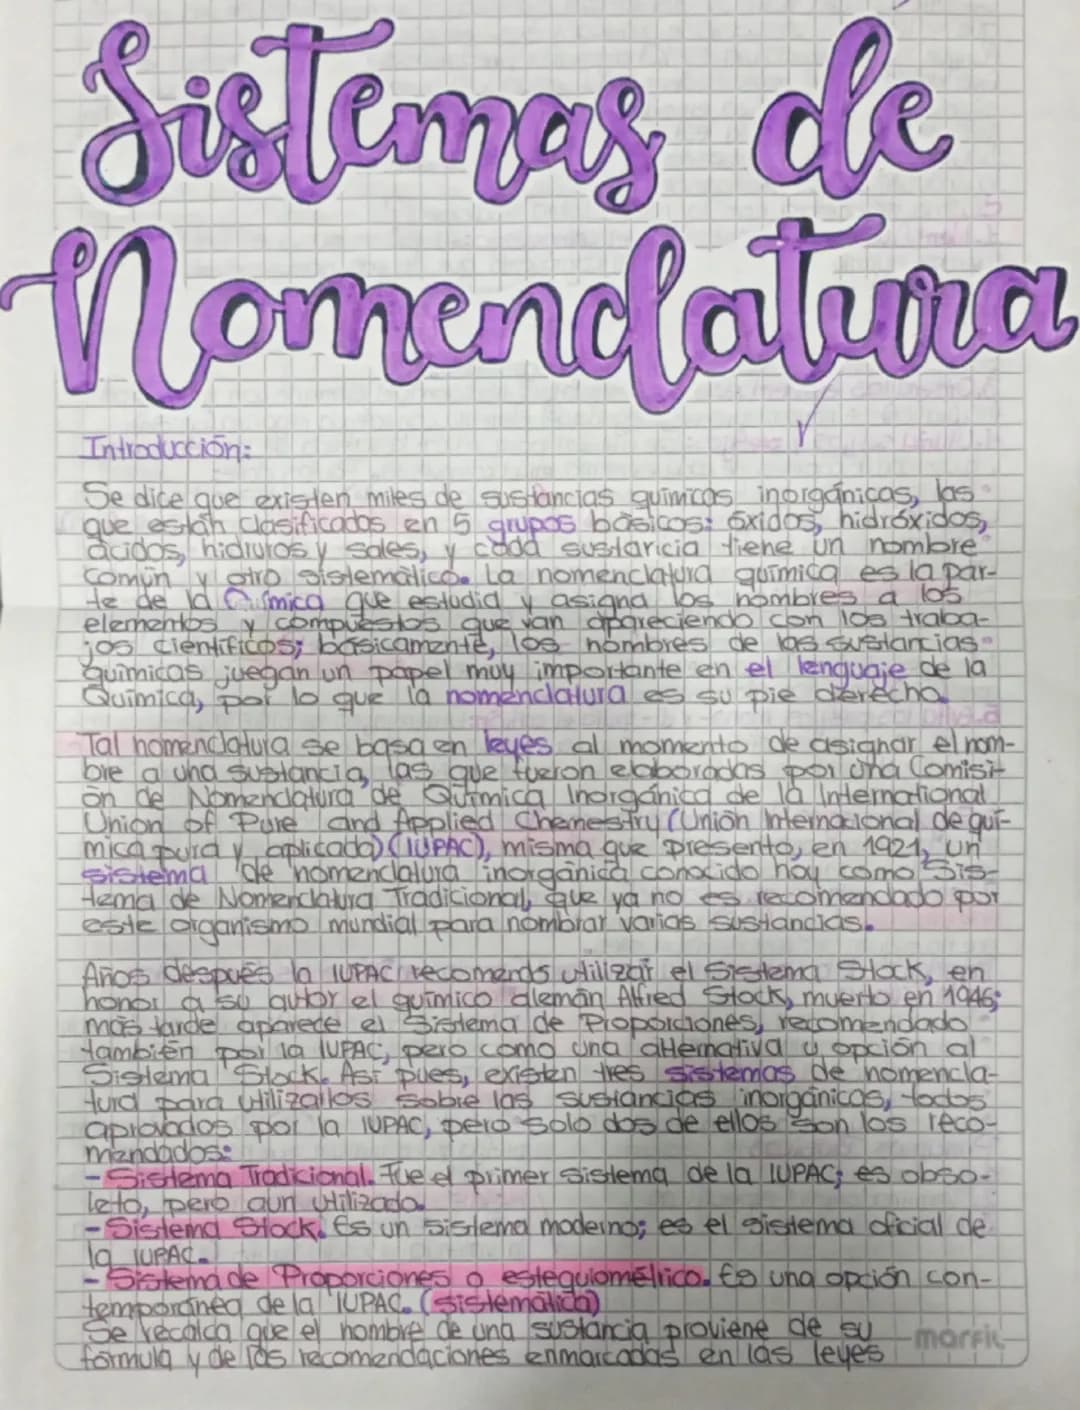 Sistemas de
Nomenclatura
Introducción:
Se dice que existen miles de sustancias químicas inorgánicas, las
que están clasificados en 5 grupos básicos: óxidos, hidróxidos,
ácidos, hidruros y sales, y cada sustancia tiene un nombre
común y otro sistemático. La nomenclatura química es la par-
te de la Química que estudia y asigna los nombres a los
elementos y compuestos que van apareciendo con los traba-
jos científicos; básicamente, los nombres de las sustancias
químicas juegan un papel muy importante en el lenguaje de la
Química, por lo que la nomenclatura es su pie derecho.
Tal nomenclatura se basa en leyes al momento de asignar el nom-
bre a una sustancia, las que fueron elaboradas por una Comisi-
ón de Nomenclatura de Química Inorgánica de la International
Union of Pure and Applied Chemestry (Unión Internacional de quí-
mica pura y aplicada) (IUPAC), misma que presento, en 1921, un
sistema de nomenclatura inorgánica conocido hoy como Sis-
tema de Nomenclatura Tradicional, que ya no es recomendado por
este organismo mundial para nombrar varias sustancias.
Años después la IUPAC recomendó utilizar el Sistema Stock, en
honor a su autor el químico alemán Alfred Stock, muerto en 1946;
más tarde aparece el Sistema de Proporciones, recomendado
también por la IUPAC, pero como una alternativa u opción al
Sistema Stock. Así pues, existen tres sistemas de nomencla-
tura para utilizallos sobre las sustancias inorgánicas, todos
aprobados por la IUPAC, pero solo dos de ellos son los reco-
mendados:
- Sistema Tradicional. Fue el primer sistema de la IUPAC; es obso-
leto, pero aun utilizado.
- Sistema Stock. Es un sistema moderno; es el sistema oficial de
la IUPAC.
- Sistema de Proporciones o estequiométrico. Es una opción con-
temporánea de la IUPAC. (sistemática)
Se recalca que el nombre de una sustancia proviene de su
fórmula y de las recomendaciones enmarcadas en las leyes
marfil